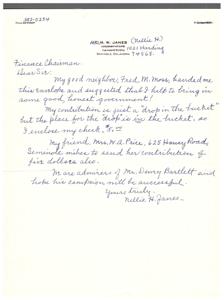 382-0254
(Nellie H.)
MRS. M. W. JANES
1021 Harding
SEMINOLE, OKLAHOMA
74868
Finance Chairman
Dear Sir:
My good neighbor, Fred M. Moss, handed me
this envelope and suggested that I help to bring in
some good, honest government!
My contribution is just a "drop in the bucket"
but the place for the drop is in the bucket, so
I enclose my check, $5.00
My friend, Mrs. N. A. Price, 625 Harvey Road,
Seminole wishes to send her contribution of
five dollars also.
We are admirers of Mr. Dewey Bartlett and
hope his campaign will be successful.
Yours truly,
Nellie H. Janes.